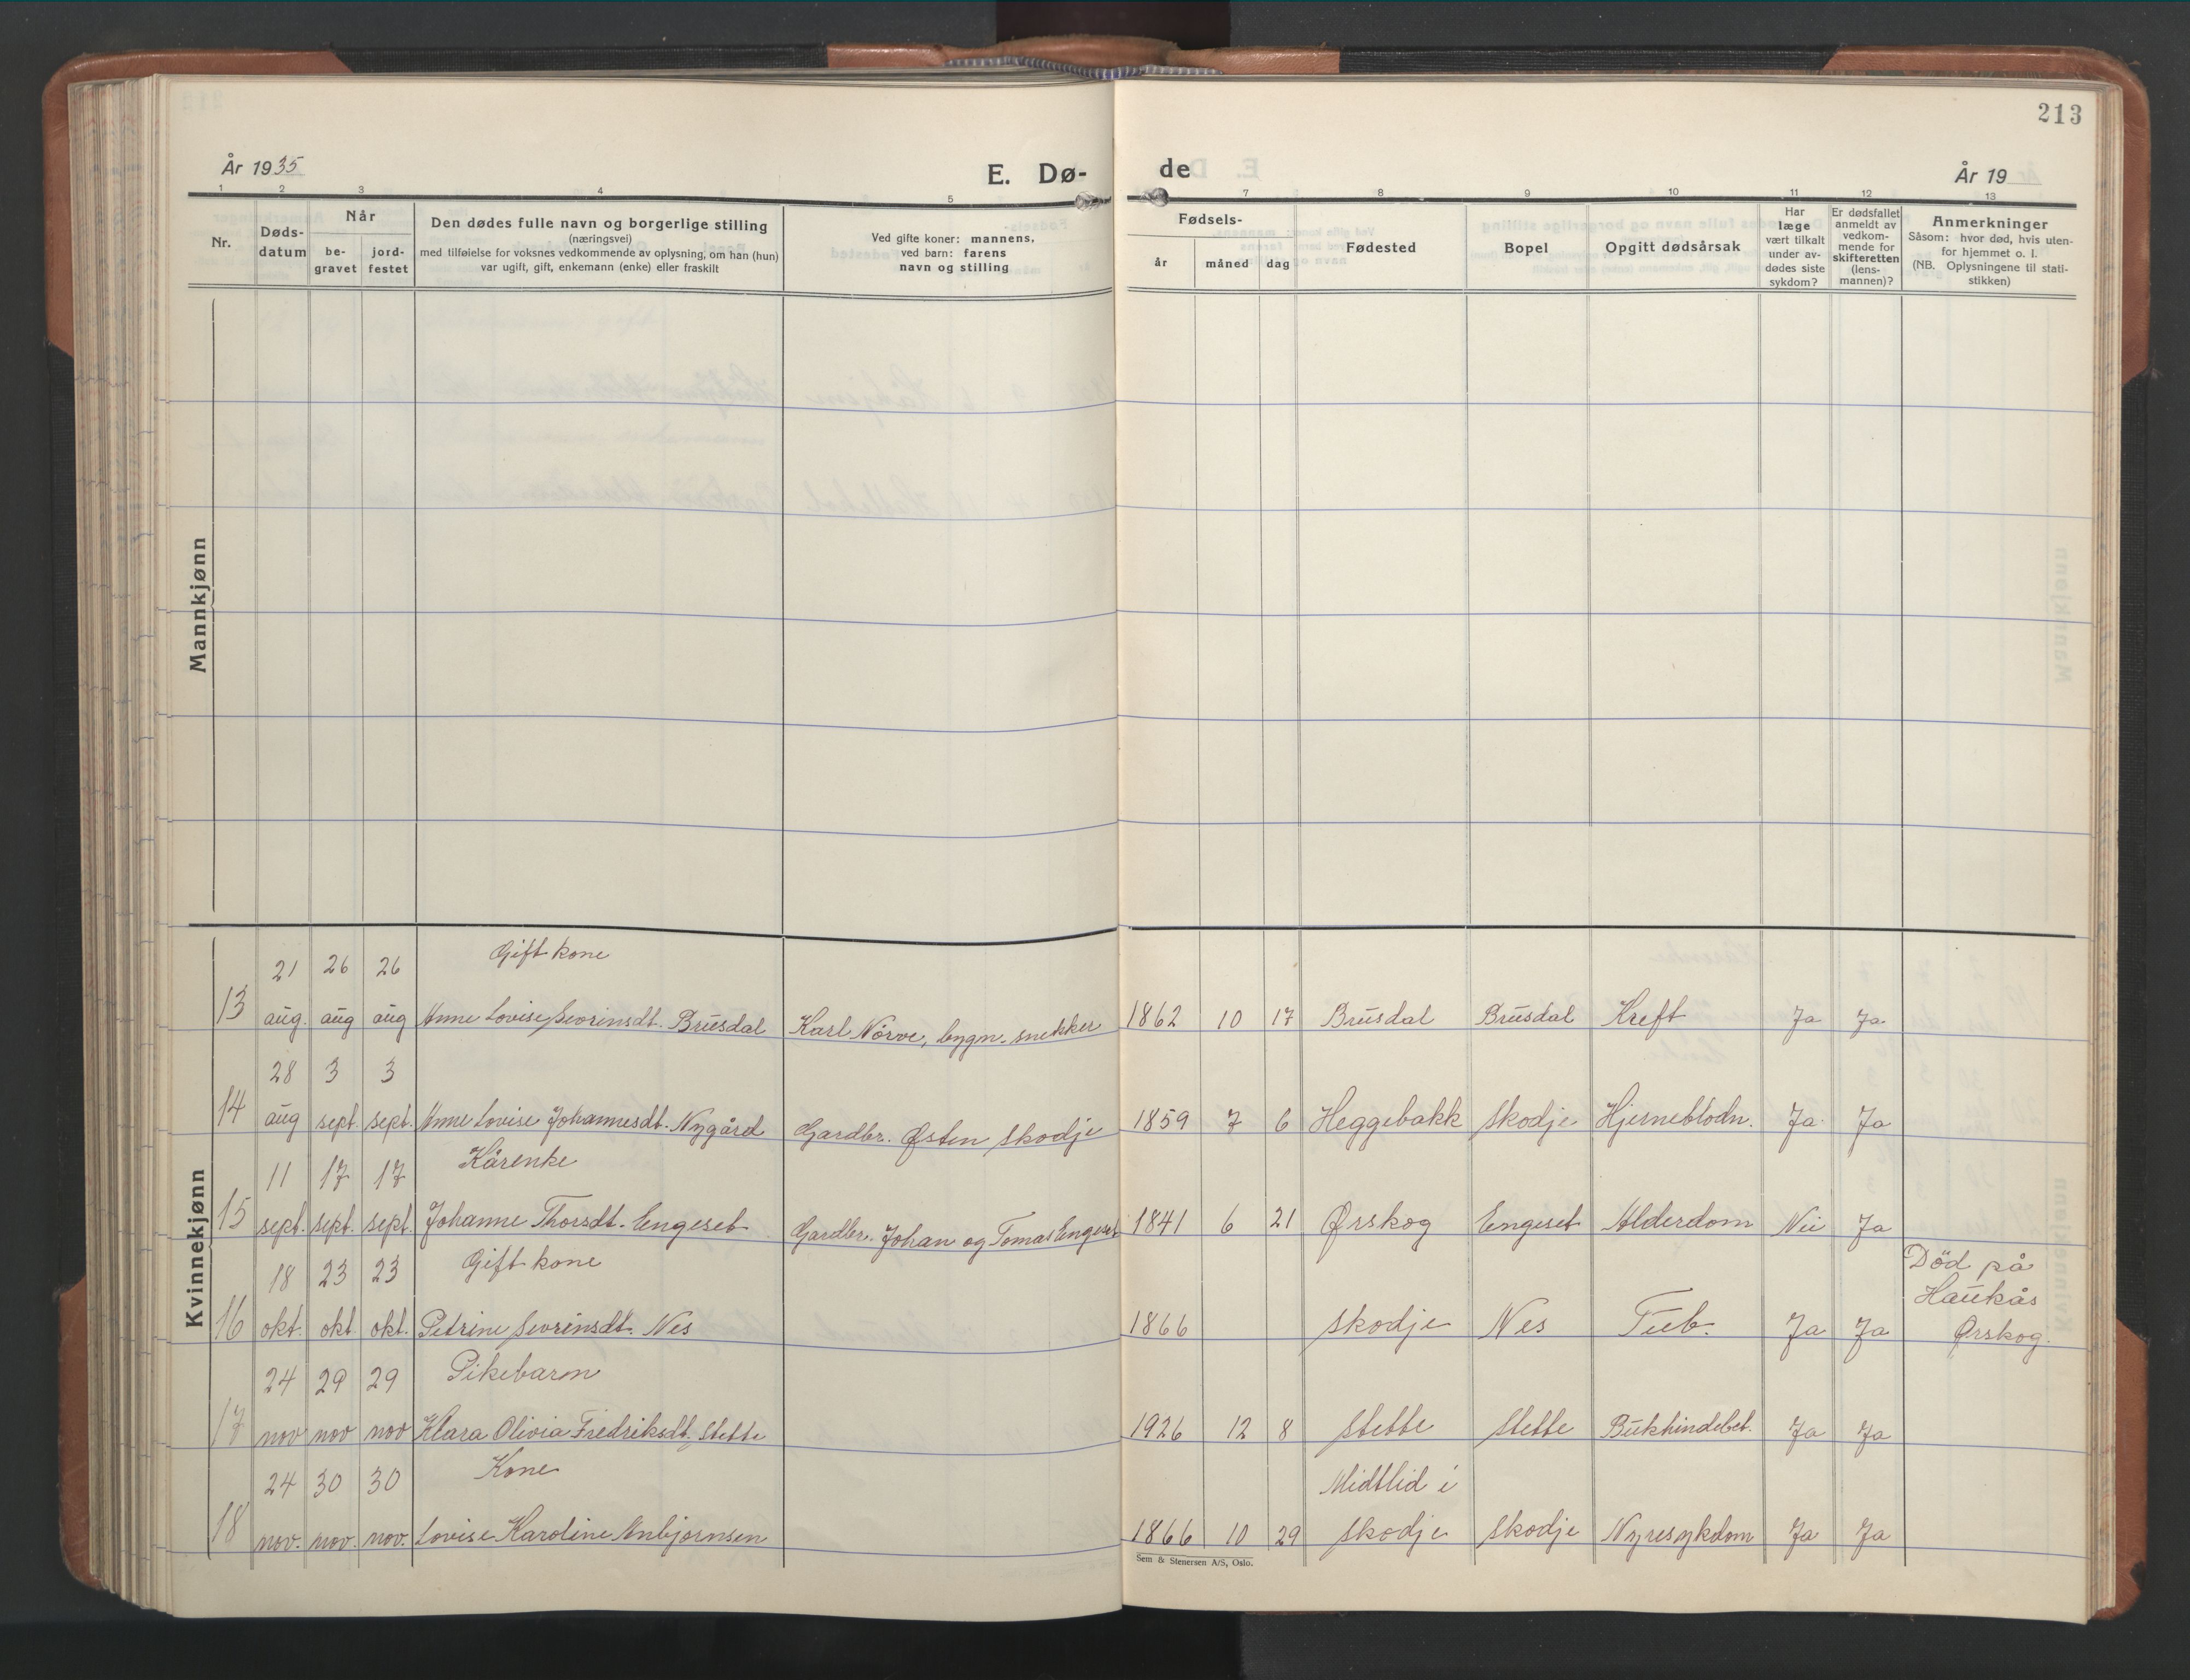 213
År 1935
E. Dø-
de
År 19
1 2 3 4 5 7 8 9 10 11 12 13
Nr.
Døds-
datum
Når
be-
gravet
jord-
festet
Den dødes fulle navn og borgerlige stilling
(næringsvei)
med tilføielse for voksnes vedkommende av oplysning, om han (hun)
var ugift, gift, enkemann (enke) eller fraskilt
Ved gifte koner: mannens,
ved barn: farens
navn og stilling
Fødsels-
år
måned
dag
Fødested
Bopel
Opgitt dødsårsak
Har
læge
vært tilkalt
under av-
dødes siste
sykdom?
Er dødsfallet
anmeldt av
vedkom-
mende for
skifteretten
(lens-
mannen)?
Anmerkninger
Såsom: hvor død, hvis uten-
for hjemmet o. l.
(NB. Oplysningene til stati-
stikken)
Mannkjønn
Kvinnekjønn
21 26 26 Gift kone
13 aug. aug aug Anne Lovise Sevrinsdt. Brusdal Karl Nörve, bygn. snekker 1862 10 17 Brusdal Brusdal Kreft Ja Ja
28 3 3
14 aug sept. sept. Anne Lovise Johannesdt. Nygård Gardbr. Østen Skodje 1859 7 6 Heggebakk Skodje Hjerneblodn. Ja Ja
11 17 17 Kårenke
15 sept. sept. sept. Johanne Thorsdt. Engeset Gardbr. Johan og Tomas Engeset 1841 6 21 Ørskog Engeset Alderdom Nei Ja
18 23 23 Gift kone Död på
Haukås
16 okt. okt. okt. Petrine Sevrinsdt. Nes 1866 Skodje Nes Tub. Ja Ja Ørskog.
24 29 29 Pikebarn
17 nov nov nov Klara Olivia Fredriksdt. Stette 1926 12 8 Stette Stette Bukhindebet. Ja Ja
24 30 30 Kone Midtlid i
18 nov. nov. nov. Lovise Karoline Anbjørnsen 1866 10 29 Skodje Skodje Nyresykdom Ja Ja
Sem & Stenersen A/S, Oslo.